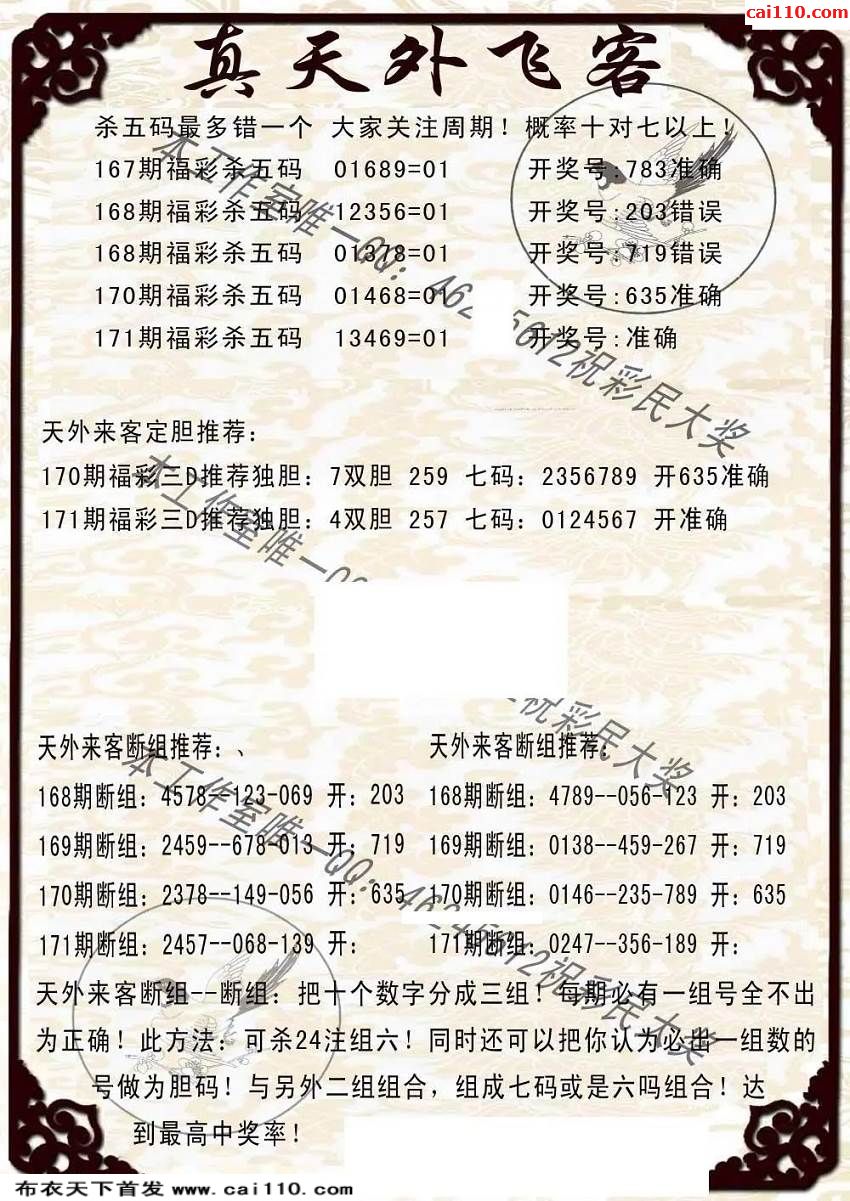 cai110.com
真天外飞客
杀五码最多错一个 大家关注周期！概率十对七以上！
167期福彩杀五码 01689=01 开奖号:783准确
168期福彩杀五码 12356=01 开奖号:203错误
168期福彩杀五码 01378=01 开奖号:719错误
170期福彩杀五码 01468=01 开奖号:635准确
171期福彩杀五码 13469=01 开奖号:准确
天外来客定胆推荐：
170期福彩三D推荐独胆：7双胆 259 七码：2356789 开635准确
171期福彩三D推荐独胆：4双胆 257 七码：0124567 开准确
天外来客断组推荐：、 天外来客断组推荐：
168期断组：4578--123-069 开：203 168期断组：4789--056-123 开：203
169期断组：2459--678-013 开：719 169期断组：0138--459-267 开：719
170期断组：2378--149-056 开：635 170期断组：0146--235-789 开：635
171期断组：2457--068-139 开： 171期断组：0247--356-189 开：
天外来客断组--断组：把十个数字分成三组！每期必有一组号全不出
为正确！此方法：可杀24注组六！同时还可以把你认为必出一组数的
号做为胆码！与另外二组组合，组成七码或是六吗组合！达
到最高中奖率！
布衣天下首发 www.cai110.com